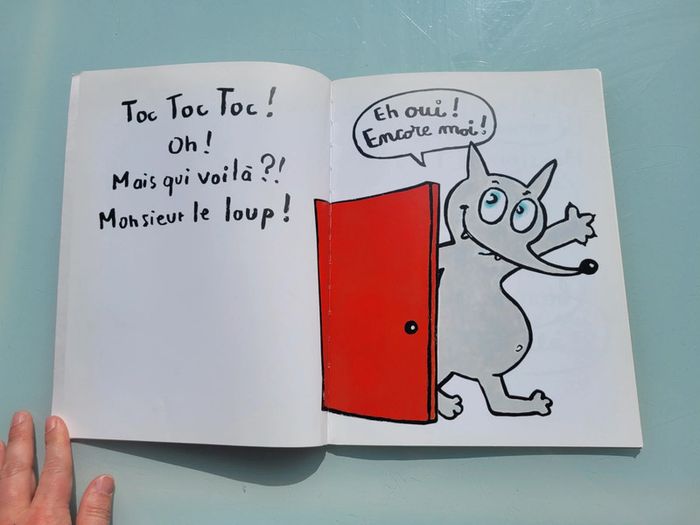 Toc Toc Toc !
Oh !
Mais qui voilà ?!
Monsieur le loup !
Eh oui !
Encore moi !